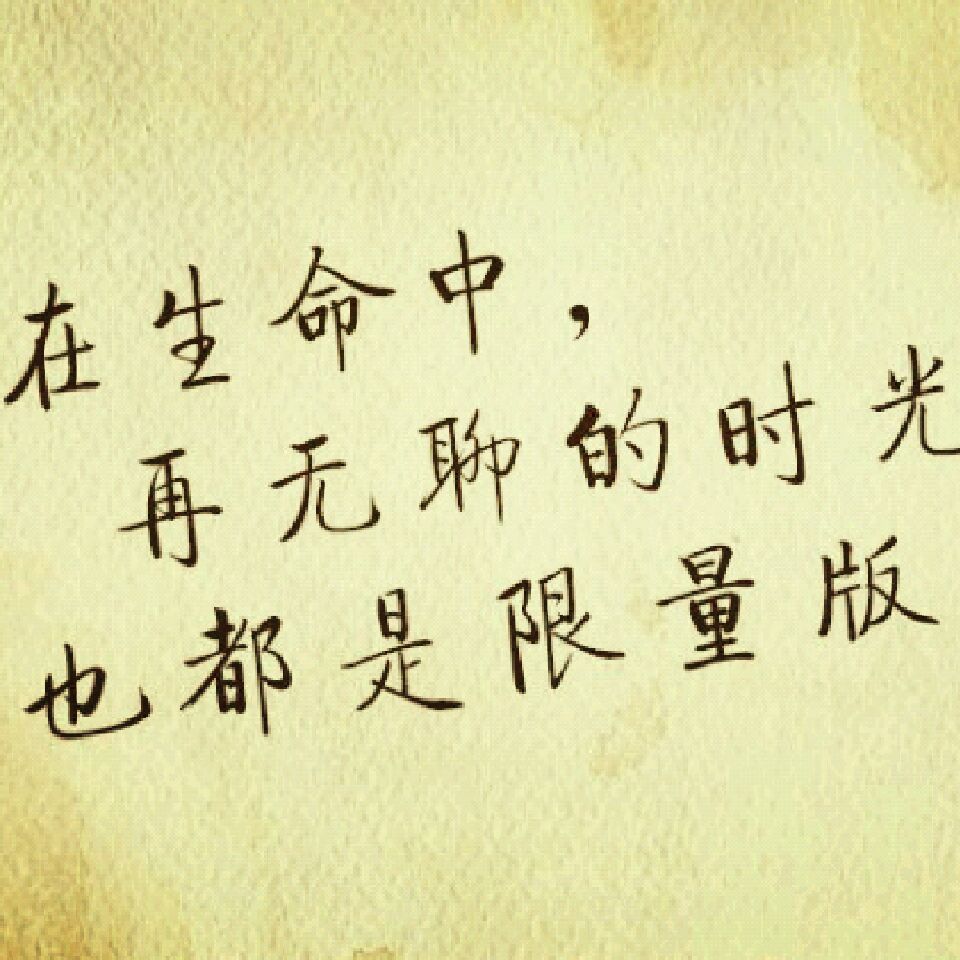 在生命中，
再无聊的时光
也都是限量版